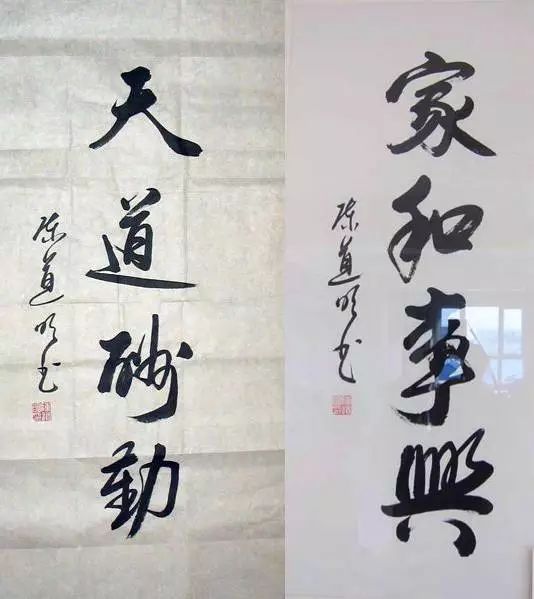 天道酬勤
陈道明书
家和事興
陈道明书